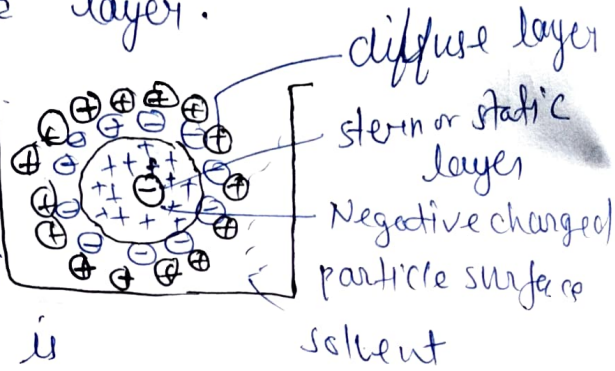 layer.
diffuse layer
stern or static
layer
Negative charged
particle surface
solvent
is